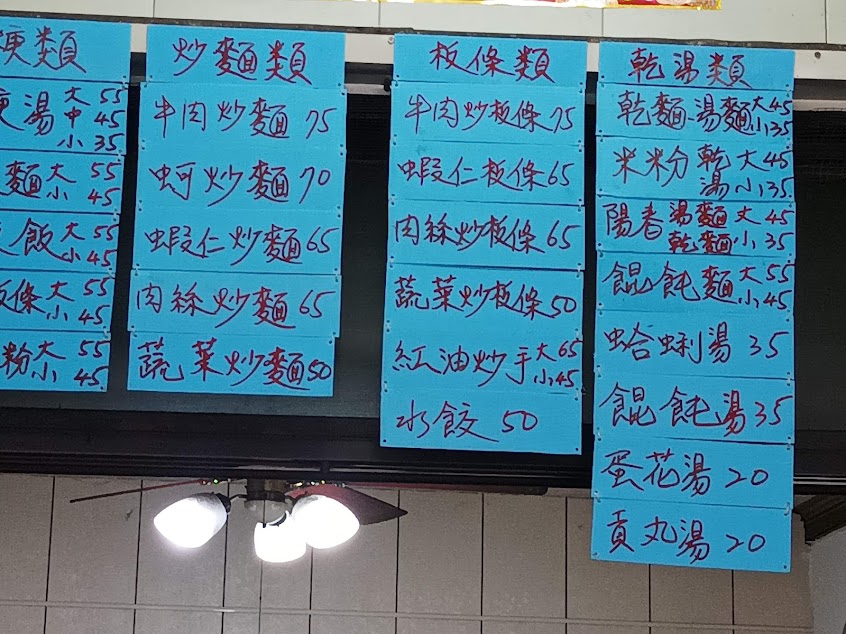 粳類
粳湯大 55
中 45
小 35
麵大 55
小 45
飯大 55
小 45
板條大 55
小 45
粉大 55
小 45
炒麵類
牛肉炒麵 75
蚵炒麵 70
蝦仁炒麵 65
肉絲炒麵 65
蔬菜炒麵 50
板條類
牛肉炒板條 75
蝦仁板條 65
肉絲炒板條 65
蔬菜炒板條 50
紅油炒手大 65
小 45
水餃 50
乾湯類
乾麵.湯麵大 45
小 35
米粉乾大 45
湯小 35
陽春湯麵大 45
乾麵小 35
餛飩麵大 55
小 45
蛤蜊湯 35
餛飩湯 35
蛋花湯 20
貢丸湯 20